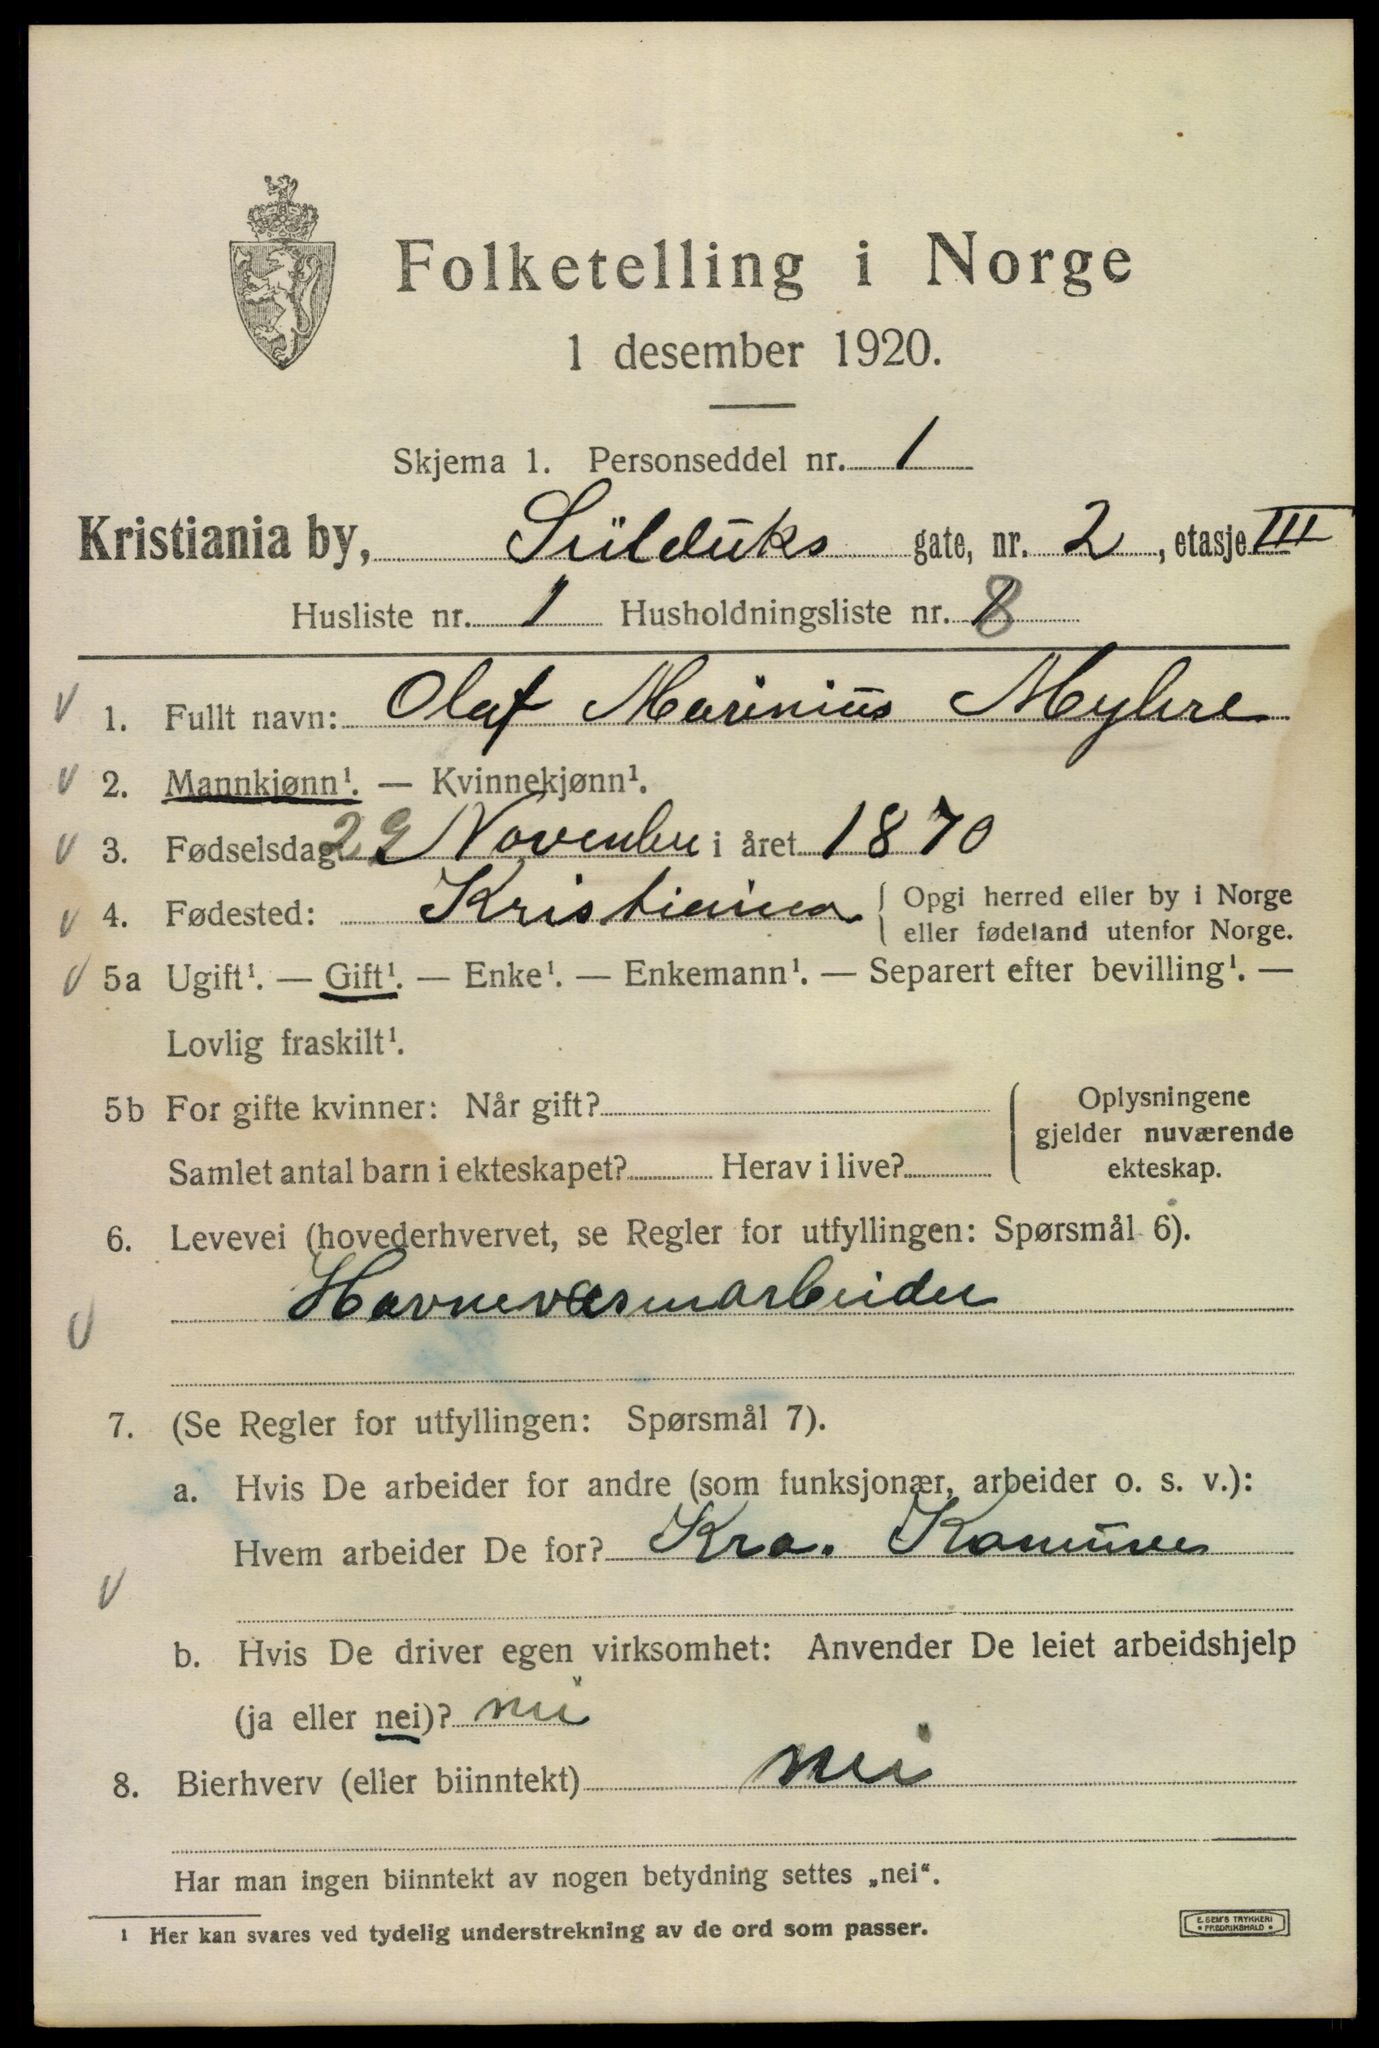 Folketelling i Norge
1 desember 1920.
Skjema 1. Personseddel nr. 1
Kristiania by, Sülduks gate, nr. 2, etasje III
Husliste nr. 1 Husholdningsliste nr. 8
1. Fullt navn: Olaf Marinius Myhre
2. Mannkjønn¹. — Kvinnekjønn¹.
3. Fødselsdag 29 November i året 1870
4. Fødested: Kristiania { Opgi herred eller by i Norge
eller fødeland utenfor Norge.
5a Ugift¹. — Gift¹. — Enke¹. — Enkemann¹. — Separert efter bevilling¹. —
Lovlig fraskilt¹.
5b For gifte kvinner: Når gift?
Samlet antal barn i ekteskapet? Herav i live?
Oplysningene
gjelder nuværende
ekteskap.
6. Levevei (hovederhvervet, se Regler for utfyllingen: Spørsmål 6).
Havnevæsenarbeider
7. (Se Regler for utfyllingen: Spørsmål 7).
a. Hvis De arbeider for andre (som funksjonær, arbeider o. s. v.):
Hvem arbeider De for? Kra. Komune
b. Hvis De driver egen virksomhet: Anvender De leiet arbeidshjelp
(ja eller nei)? nei
8. Bierhverv (eller biinntekt) nei
Har man ingen biinntekt av nogen betydning settes „nei“.
¹ Her kan svares ved tydelig understrekning av de ord som passer.
E. SEM'S TRYKKERI
• FREDRIKSHALD •